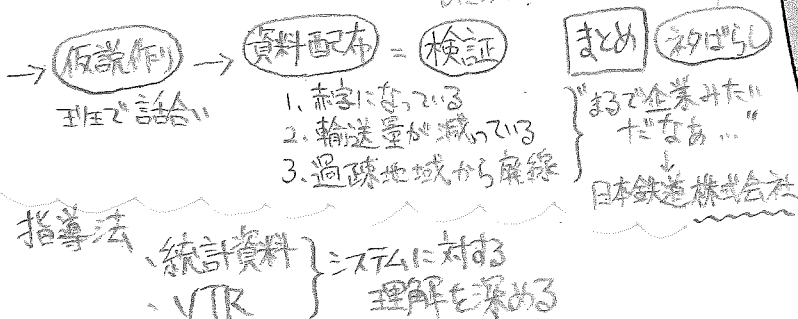 → 仮説作り → 資料配布 = 検証
班で話合い
1. 赤字になっている
2. 輸送量が減っている
3. 過疎地域から廃線
まとめ ネタばらし
"まるで企業みたい
だなぁ…"
↓
日本鉄道株式会社
指導法
・統計資料
・VTR
システムに対する
理解を深める